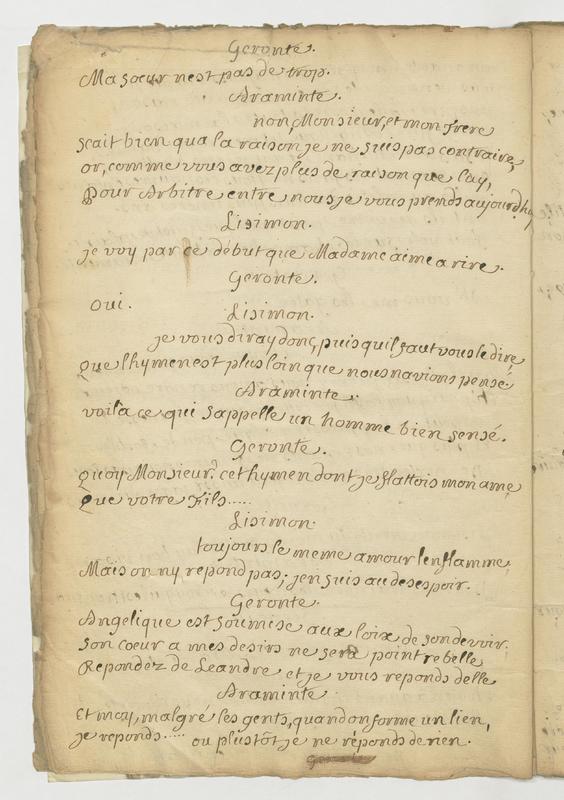 Geronte.
Ma soeur nest pas de trop.
Araminte.
non, Monsieur, et mon frere
scait bien qua la raison je ne suis pas contraire,
or, comme vous avez plus de raison que luy,
Pour Arbitre entre nous je vous prends aujourdhuy
Lisimon.
je voy par ce début que Madame aime a rire.
Geronte.
oui.
Lisimon.
je vous diray donc, puis quil faut vous le dire
Que lhymen est plus loin que nous navions pensé.
Araminte.
voila ce qui sappelle un homme bien sensé.
Geronte.
Quoy Monsieur? cet hymen dont je flattois mon ame
Que votre fils.....
Lisimon.
toujours le meme amour lenflamme,
Mais on ny repond pas; jen suis au desespoir.
Geronte.
Angelique est soumise aux loix de son devoir.
son coeur a mes desirs ne sera point rebelle
Repondez de Leandre et je vous reponds delle
Araminte
Et moy, malgré les gents, quand on forme un lien,
je reponds..... ou plustôt je ne réponds de rien.